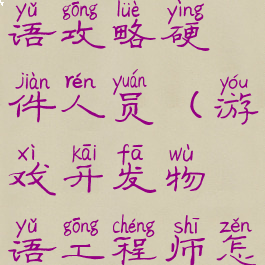 yǔ gōng lüè yìng
语攻略硬
jiàn rén yuán yóu
件人员（游
xì kāi fā wù
戏开发物
yǔ gōng chéng shī zěn
语工程师怎